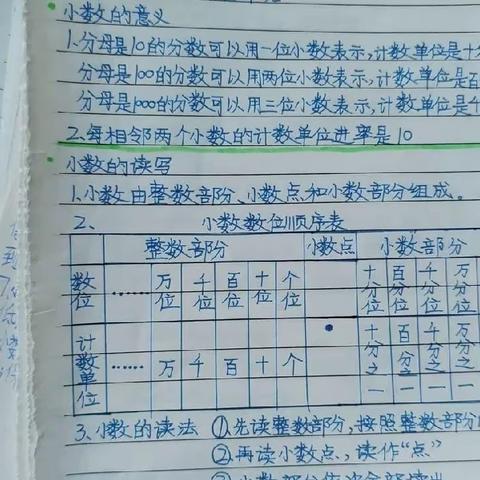 小数的意义
1.分母是10的分数可以用一位小数表示,计数单位是十分
分母是100的分数可以用两位小数表示,计数单位是百
分母是1000的分数可以用三位小数表示,计数单位是千
2.每相邻两个小数的计数单位进率是10
小数的读写
1.小数由整数部份、小数点和小数部分组成。
2、 小数数位顺序表
整数部分 小数点 小数部分
数位 …… 万位 千位 百位 十位 个位 十分位 百分位 千分位 万分位
计数单位 …… 万 千 百 十 个 • 十分之一 百分之一 千分之一 万分之一
3、小数的读法 ①先读整数部份,按照整数部分
②再读小数点、读作“点”